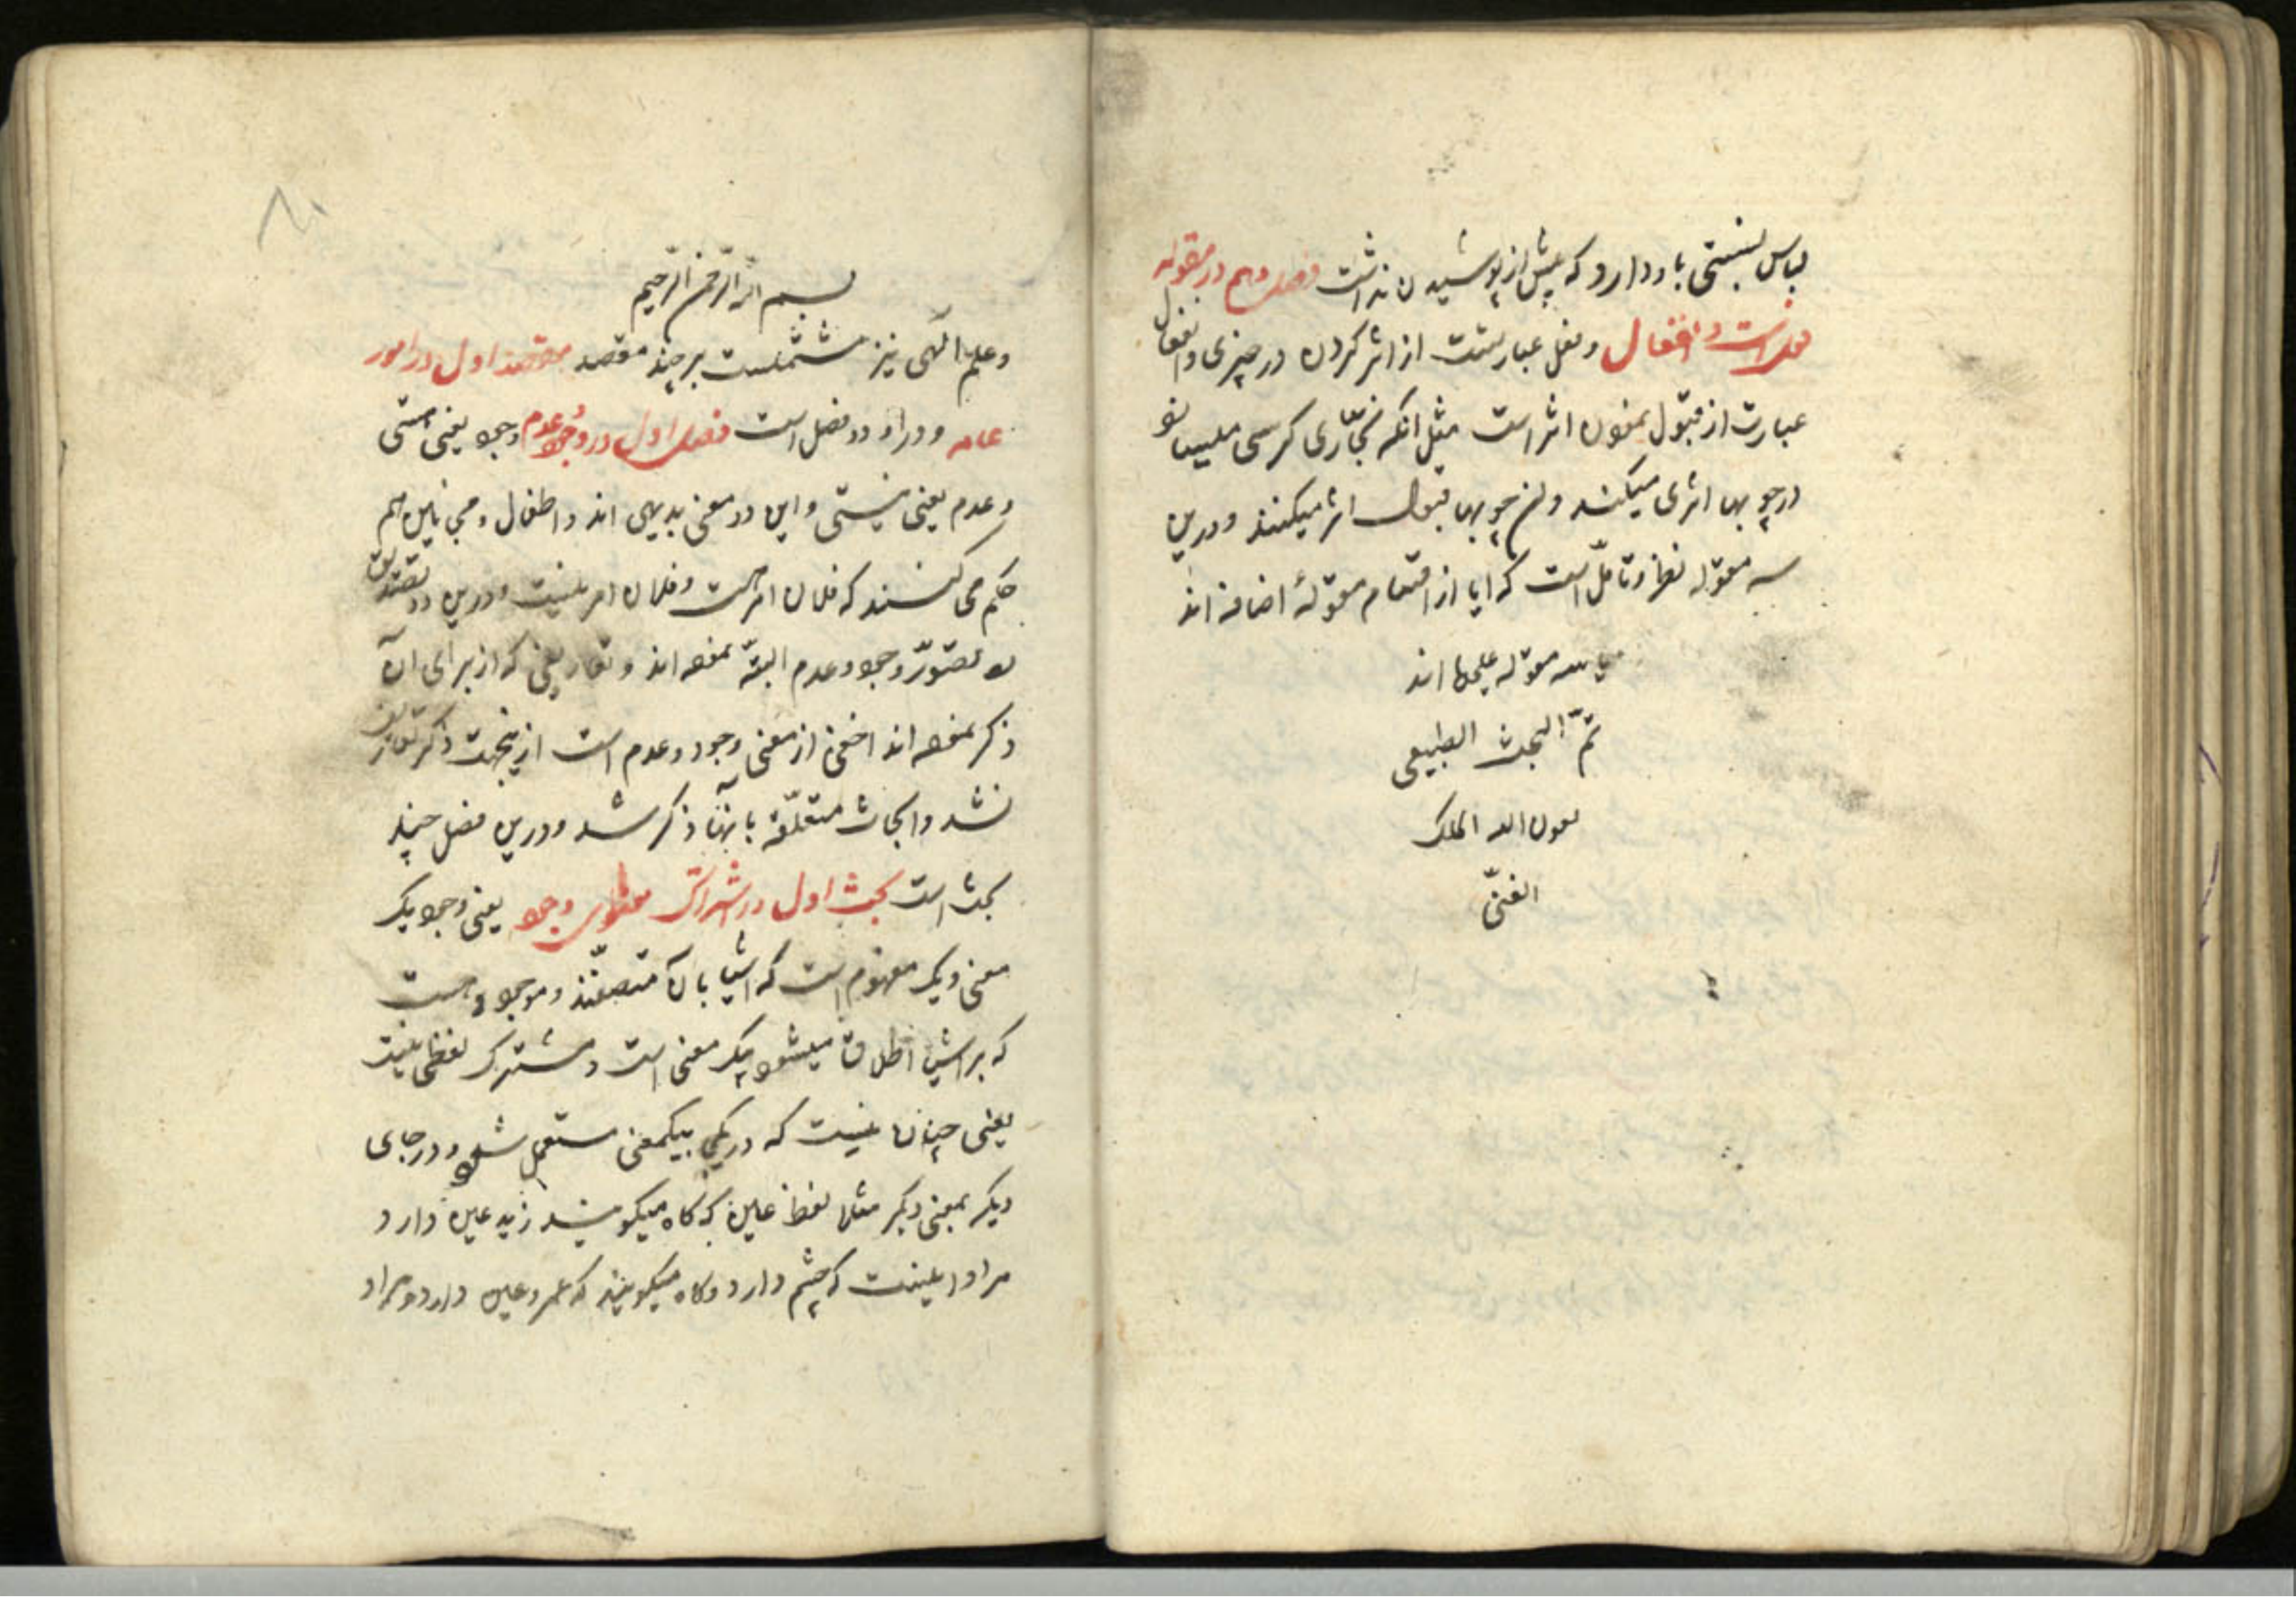 لباس نسبتی باو دارد که پیش از پوشیدن نداشت فصل دهم در مقوله
فعل است و انفعال و فعل عبارتست از اثر کردن در چیزی و انفعال
عبارت از قبول نمودن اثر است مثل انکه نجّاری کرسی میسازد
در چوبها اثری میکند و ان چوبها قبول اثر میکنند و درین
سه مقوله نظر و تامّل است که ایا از اقسام مقولهٔ اضافه اند
یا سه مقوله علیحده اند
تمّ البحث الطبیعی
بعون الله الملک
الغنیّ
بسم الله الرّحمن الرّحیم
و علم الهی نیز مشتملست بر چند مقصد مقصد اول در امور
عامه و در او دو فصل است فصل اول در وجود و عدم وجود یعنی هستی
و عدم یعنی نیستی و این دو معنی بدیهی اند و اطفال و مجانین هم
حکم می کنند که فلان امر هست و فلان امر نیست و درین دو تصدیق
تصوّر وجود و عدم البتّه نموده اند و تعاریفی که از برای آن
ذکر نموده اند اخفی از معنی وجود و عدم است ازینجهت ذکر تعاریف
نشد و ابحاث متعلّقه بانها ذکر شد و درین فصل چند
بحث است بحث اول در اشتراک معنوی وجود یعنی وجود یک
معنی و یک مفهوم است که اشیا بان متصفند و موجود و هست
که بر اشیا اطلاق میشود بیک معنی است و مشترک لفظی نیست
یعنی چنان نیست که در یکی بیکمعنی مستعمل شود و در جای
دیگر بمعنی دیگر مثلا لفظ عین که کاه میکویند زید عین دارد
مراد اینست که چشم دارد و کاه میکویند که عمرو عین دارد و مراد